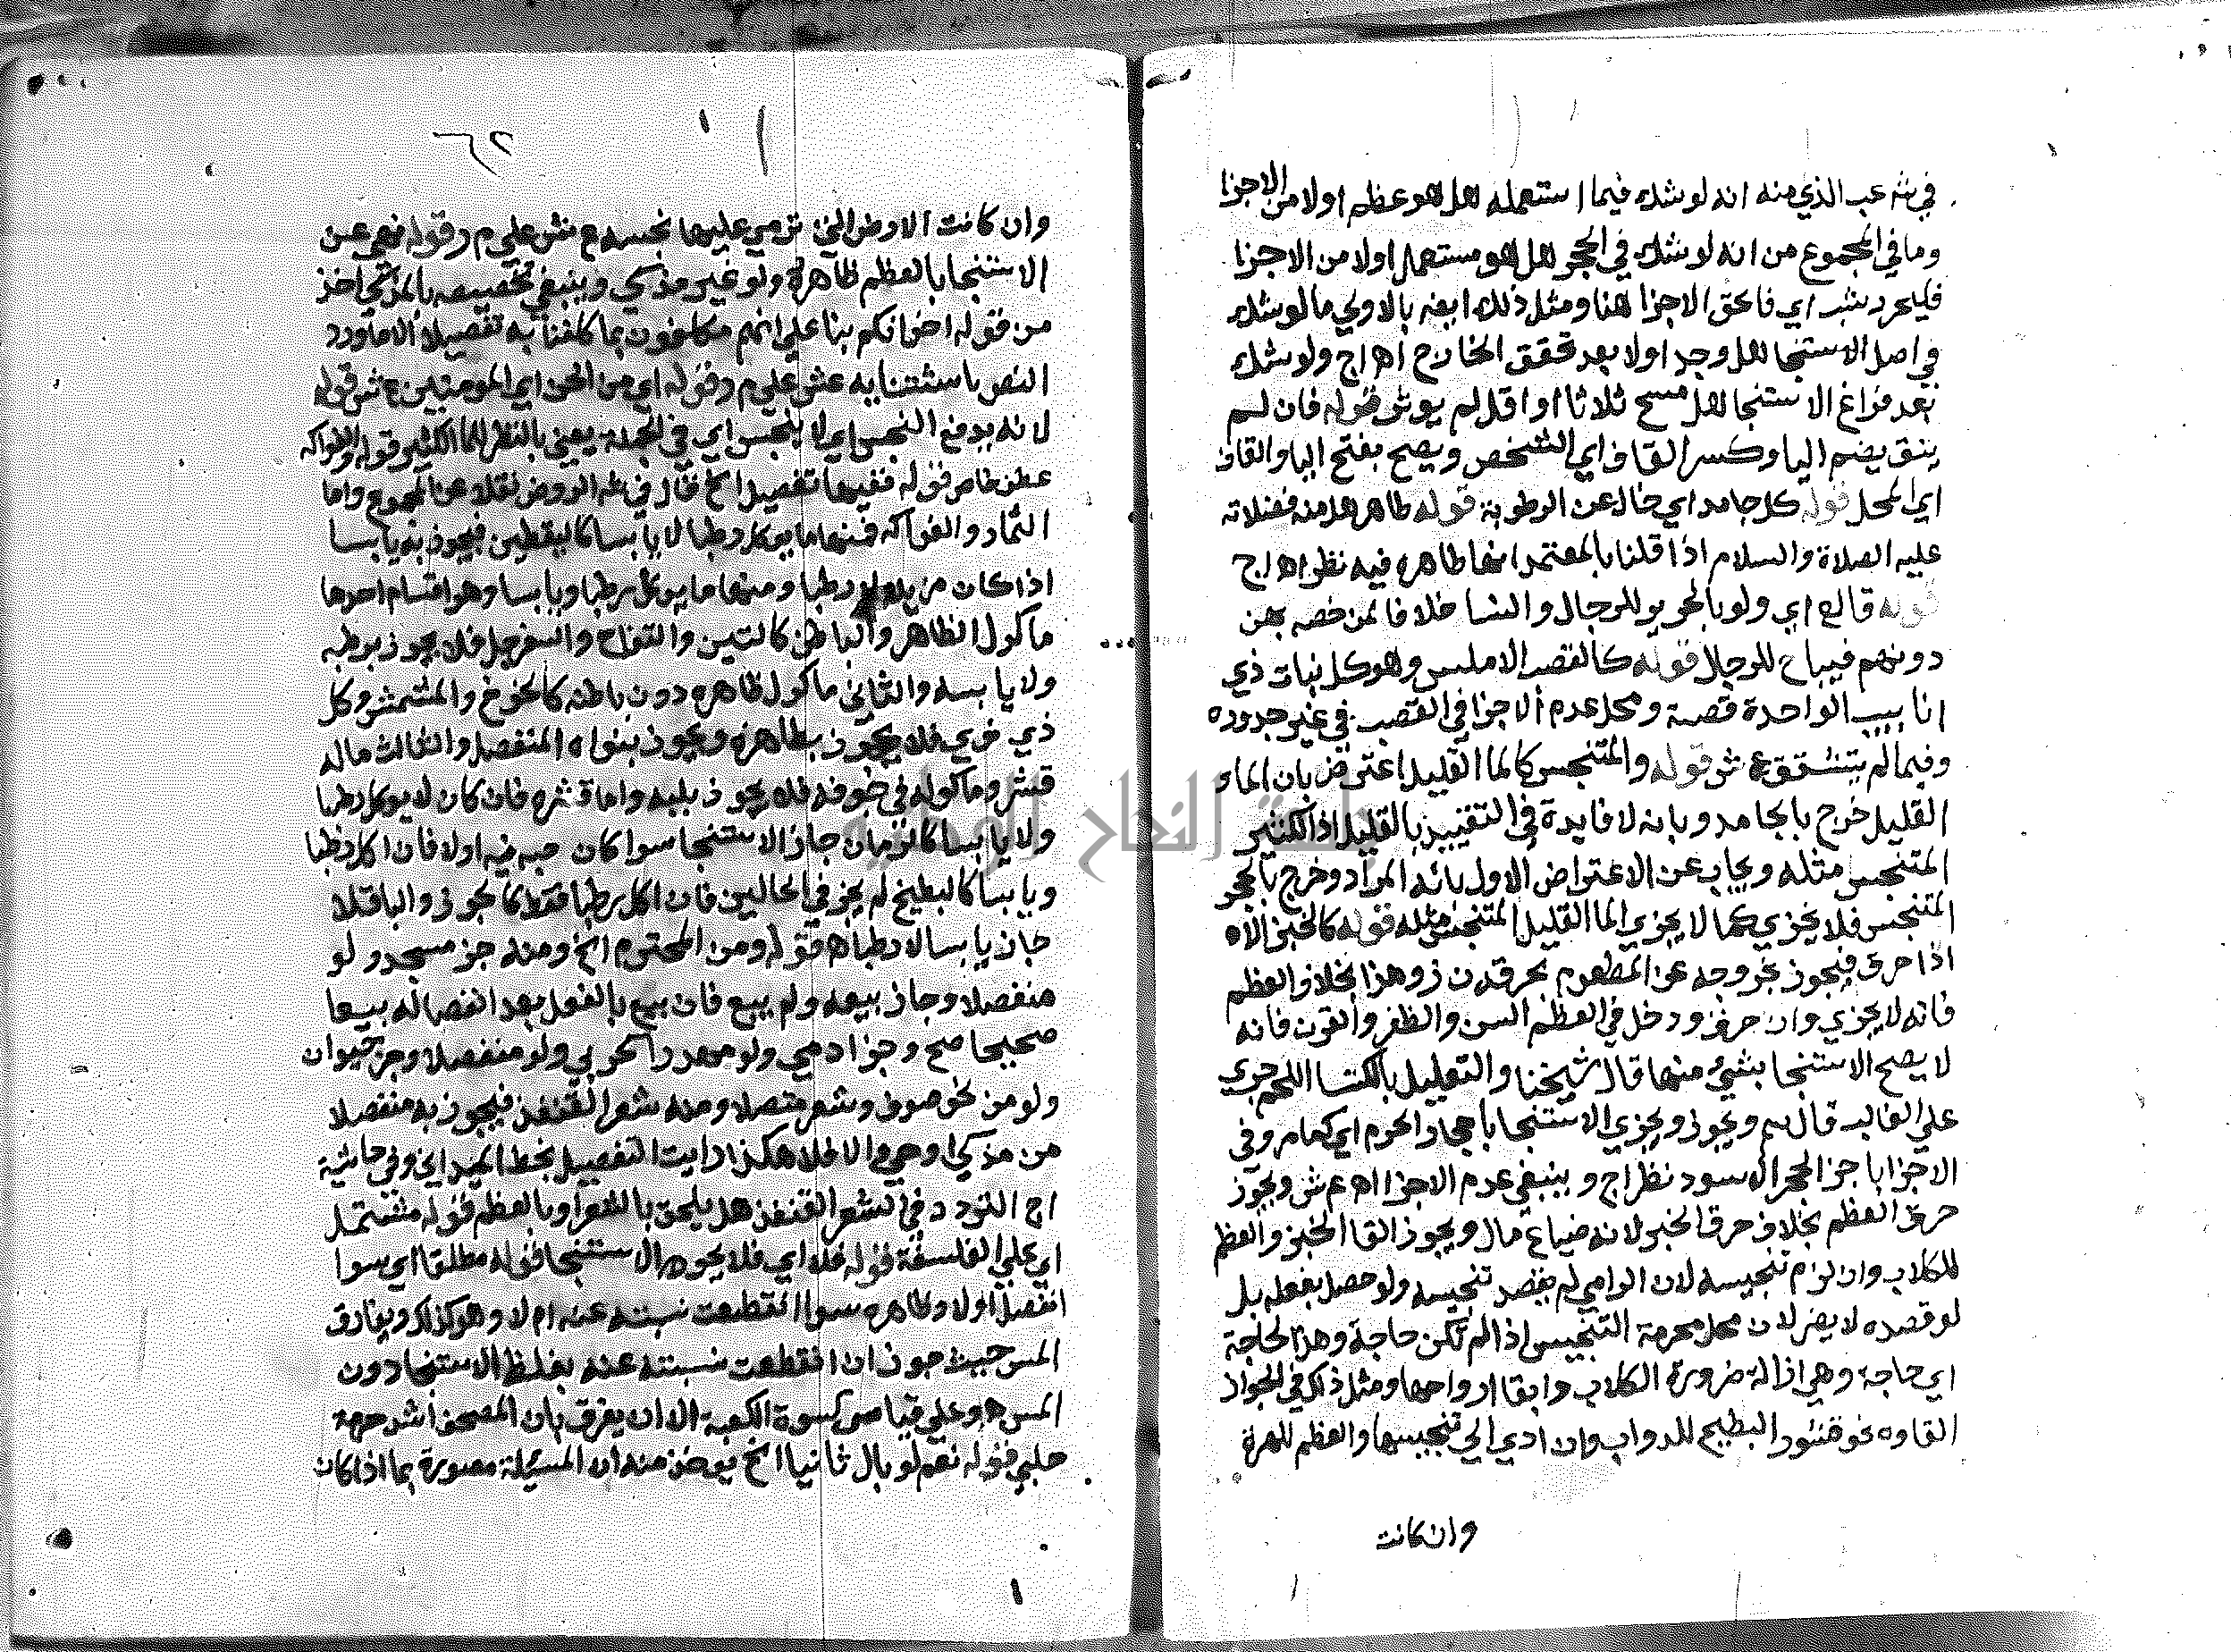 في شرعب الذي منه انه لو شك فيما استعمله هل هو عظم اولا من الاجزا
وما في المجموع من انه لو شك في الحجر هل هو مستعمل اولا من الاجزا
فليحرر شب اي فالحق الاجزا هنا ومثل ذلك ايضه بالاولي ما لو شك
في اصل الاستنجا هل وجد اولا بعد تحقق الخارج اه اج ولو شك
بعد فراغ الاستنجا هل مسح ثلاثا او اقل لم يوثر قوله فان لم
ينق بضم اليا وكسر القاف اي الشخص ويصح بفتح اليا والقاف
اي المحل قوله كل جامد اي خال عن الرطوبة قوله طاهر هل منه فضلاته
عليه الصلاة والسلام اذا قلنا بالمعتمد انها طاهره فيه نظر اه اج
قوله قالع اي ولو بالحرير للرجال والنسا خلافا لمن خصه بهن
دونهم فيباح للرجال قوله كالقصب الاملس وهو كل نبات ذي
انابيب الواحدة قصبة ومحل عدم الاجزا في القصب في غير جدوره
وفيما لم يتشقق ع ش قوله والمتنجس كالما القليل اعترض بان الماء
القليل خرج بالجامد وبانه لا فايدة في التقييد بالقليل اذ الكثير
المتنجس مثله ويجاب عن الاعتراض الاول بانه المراد وخرج بالحجر
المتنجس فلا يجزي كما لا يجزي الما القليل المتنجس مثله قوله كالخبز الا ه
اذا حرق فيجوز بخروجه عن المطعوم بحرقه ن ز وهذا بخلاف العظم
فانه لا يجزي وان حرق ودخل في العظم السن والظفر والقرن فانه
لا يصح الاستنجا بشيء منها قال شيخنا والتعليل بالكتسا اللحم جري
علي الغالب قال سم ويجوز ويجزي الاستنجا باحجار الحرم اي كما مر وفي
الاجزا باجزا الحجر الاسود نظر اج وينبغي عدم الاجزا اه ع ش ويجوز
حرق العظم بخلاف حرق الخبز لانه ضياع مال ويجوز القا الخبز والعظم
للكلاب وان لزم تنجيسه لان الرامي لم يقصد تنجيسه ولو حصل بفعله بل
لو قصده لا يضر لان محل حرمة التنجيس اذا لم تكن حاجة وهذا لحاجة
اي حاجة وهي ازالة ضرورة الكلاب وابقا ارواحها ومثل ذلك في الجواز
القاوه نحو قشور البطيخ للدواب وان ادي الي تنجيسها والعظم للهرة
وان كانت
٦٢
وان كانت الارض التي ترمي عليها نجسه ع ش علي م ر قوله نهي عن
الاستنجا بالعظم ظاهره ولو غير مذكي وينبغي تخصيصه بالمذكي اخذ
من قوله اخوانكم بنا علي انهم مكلفون بما كلفنا به تفصيلا الا ما ورد
النص باستثنايه ع ش علي م ر قوله اي من الجن اي المومنين ع ش قوله
لانه يدفع النجس اي لا ينجس اي في الجملة يعني بالنظر للما الكثير قوله والفواكه
عطف خاص قوله ففيها تفصيل الخ قال في شه الروض نقلا عن المجموع واما
الثمار والفواكه فمنها ما يوكل رطبا لا يابسا كاليقطين فيجوز به يابسا
اذا كان مزيلا رطبا ومنها ما يوكل رطبا ويابسا وهو اقسام احدها
ماكول الظاهر والباطن كالتين والتفاح والسفرجل فلا يجوز برطبه
ولا يابسه والثاني ماكول ظاهره دون باطنه كالخوخ والمشمش وكل
ذي نوي فلا يجوز بظاهره ويجوز بنواه المنفصل والثالث ماله
قشر وماكوله في جوفه فلا يجوز بلبه واما قشره فان كان لا يوكل رطبا
ولا يابسا كالرمان جاز الاستنجا سوا كان حبه فيه اولا فان اكل رطبا
ويابسا كالبطيخ لم يجز في الحالين فان اكل رطبا فقط كالجوز والباقلا
جاز يابسا لا رطبا اه قوله ومن المحترم الخ ومنه جز مسجد ولو
منفصلا وجاز بيعه ولم يبع فان بيع بالفعل بعد انفصاله بيعا
صحيحا صح وجزا دمي ولو مهدرا كحربي ولو منفصلا وجز حيوان
ولو من نحو صوف وشعر متصلا ومنه شعر القنفذ فيجوز به منفصلا
من مذكي او حي والا فلا هكذا رايت التفصيل بخط الميداني وفي حاشية
اج التردد في شعر القنفذ هل يلحق بالشعر او بالعظم قوله مشتمل
اي علي الفلسفة قوله فلا اي فلا يجوز الاستنجا قوله مطلقا اي سوا
انفصل اولا وظاهره سوا انقطعت نسبته عنه ام لا وهو كذلك ويفارق
المس حيث جوز ان انقطعت نسبته عنه بغلظ الاستنجا دون
المس اه وعلي قياس كسوة الكعبة الا ان يفرق بان المصحف اشد حرمة
حلبي قوله نعم لو بال ثانيا الخ يوخذ منه ان المسئلة مصورة بما اذا كان